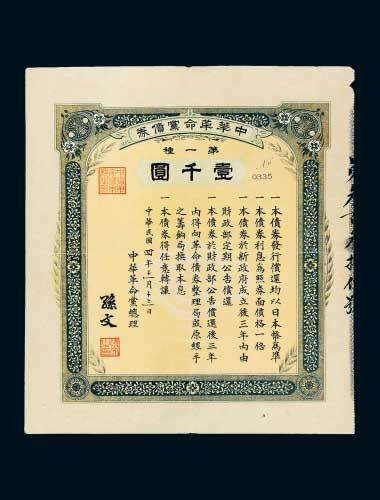 中華革命黨債券
第一種
壹千圓
0335
一本債券發行償還均以日本幣為準
一本債券利息為照券面價格一倍
一本債券於新政府成立後三年內由
財政部定期公告償還
一本債券於財政部公告償還後三年
內得向革命債券整理局或原經手
之籌餉局換取本息
一本債券得任意轉讓
中華民國四年
中華革命黨總理
孫文